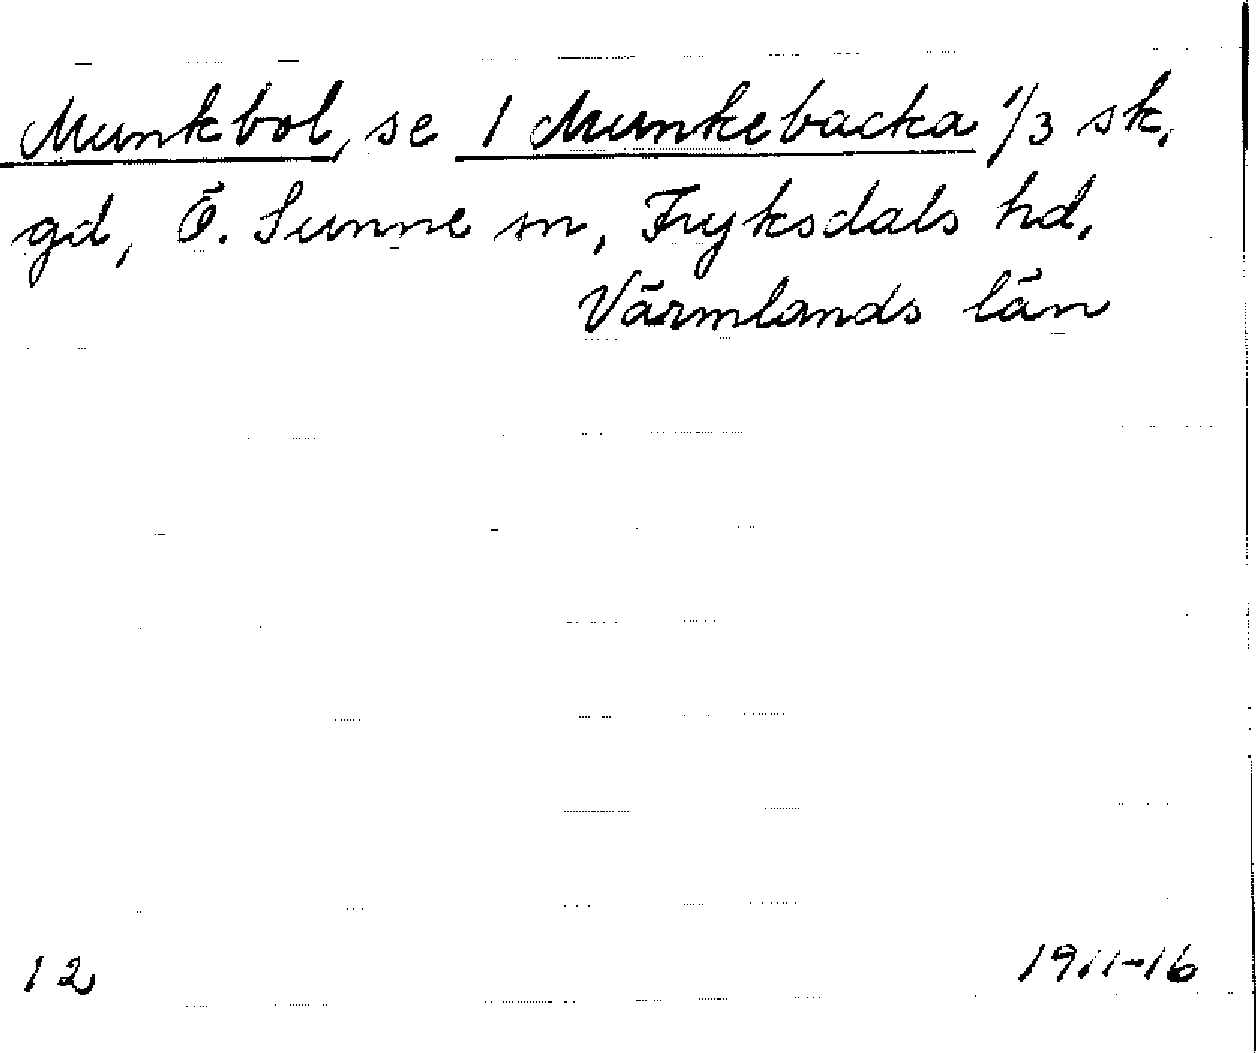 Munkbol, se 1 Munkebacka 1/3 sk,
gd, Ö. Sunne sn, Fryksdals hd,
Värmlands län
12
1911-16